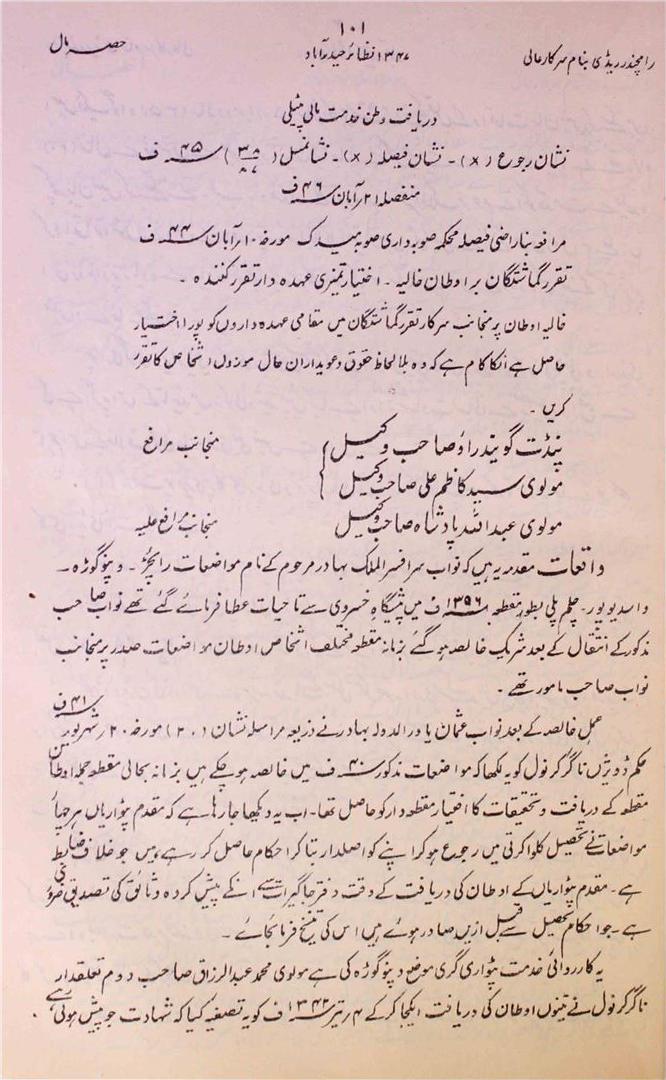 ۱۰۱
رامچندر ریڈی بنام سرکار عالی
۱۳۴۷ نظائر حیدرآباد
حصہ مال
دریافت وطن خدمت مالی پٹیلی
نشان رجوع (x) ۔ نشان فیصلہ (x) ۔ نشانمسل (۳۸/۸۷) ۴۵ ف
منفصلہ ۲۱ آبان ۴۶ ف
مرافعہ بناراضی فیصلہ محکمہ صوبہ داری صوبہ میدک مورخہ ۱۰ آبان ۴۴ ف
تقرر گماشتگان بر اوطان خالیہ ۔ اختیار تمیزی عہدہ دار تقرر کنندہ ۔
خالیہ اوطان پر منجانب سرکار تقرر گماشتگان میں مقامی عہدہ داروں کو پورا اختیار
حاصل ہے انکا کام ہے کہ وہ بلا لحاظ حقوق دعویداران حال موزوں اشخاص کا تقرر
کریں ۔
پنڈت گویند راؤ صاحب وکیل
مولوی سید کاظم علی صاحب وکیل } منجانب مرافع
مولوی عبداللہ پادشاہ صاحب وکیل منجانب مرافع علیہ
واقعات مقدمہ یہ ہیں کہ نواب سر افسر الملک بہادر مرحوم کے نام مواضعات رانچڑ ۔ ونپوگوڑہ ۔
واسدیوپور ۔ چلم پلی بطور مقطعہ ۱۳۵۶ ف میں پیشگاہ خسروی سے تا حیات عطا فرمائے گئے تھے نواب صاحب
مذکور کے انتقال کے بعد شریک خالصہ ہوگئے بزمانہ مقطعہ مختلف اشخاص اوطان مواضعات صدر پر منجانب
نواب صاحب مامور تھے ۔
عمل خالصہ کے بعد نواب عثمان یاور الدولہ بہادر نے ذریعہ مراسلہ نشان (۲۰) مورخہ ۲۰ شہریور ۴۱ ف
حکم ڈویژن ناگرکرنول کو یہ لکھا کہ مواضعات مذکور ۴۰ ف میں خالصہ ہو چکے ہیں بزمانہ بحالی مقطعہ جملہ اوطان
مقطعہ کے دریافت و تحقیقات کا اختیار مقطعہ دار کو حاصل تھا ۔ اب یہ دیکھا جا رہا ہے کہ مقدم پٹواریاں ہر چہار
مواضعات نے تحصیل کلواکرتی میں رجوع ہو کر اپنے کو اصلدار بتا کر احکام حاصل کر رہے ہیں جو خلاف ضابطہ
ہے ۔ مقدم پٹواریاں کے اوطان کی دریافت کے وقت دفتر جاگیرات سے انکے پیش کردہ وثائق کی تصدیق ضروری
ہے ۔ جو احکام تحصیل سے قبل ازیں صادر ہوئے ہیں اس کی تنسیخ فرمائجائے ۔
یہ کارروائی خدمت پٹواری گری موضع ونپوگوڑہ کی ہے مولوی محمد عبدالرزاق صاحب دوم تعلقدار
ناگرکرنول نے تینوں اوطان کی دریافت ایکجا کر کے ۴ تیر ۱۳۴۲ ف کو یہ تصفیہ کیا کہ شہادت جو پیش ہوئی ہے